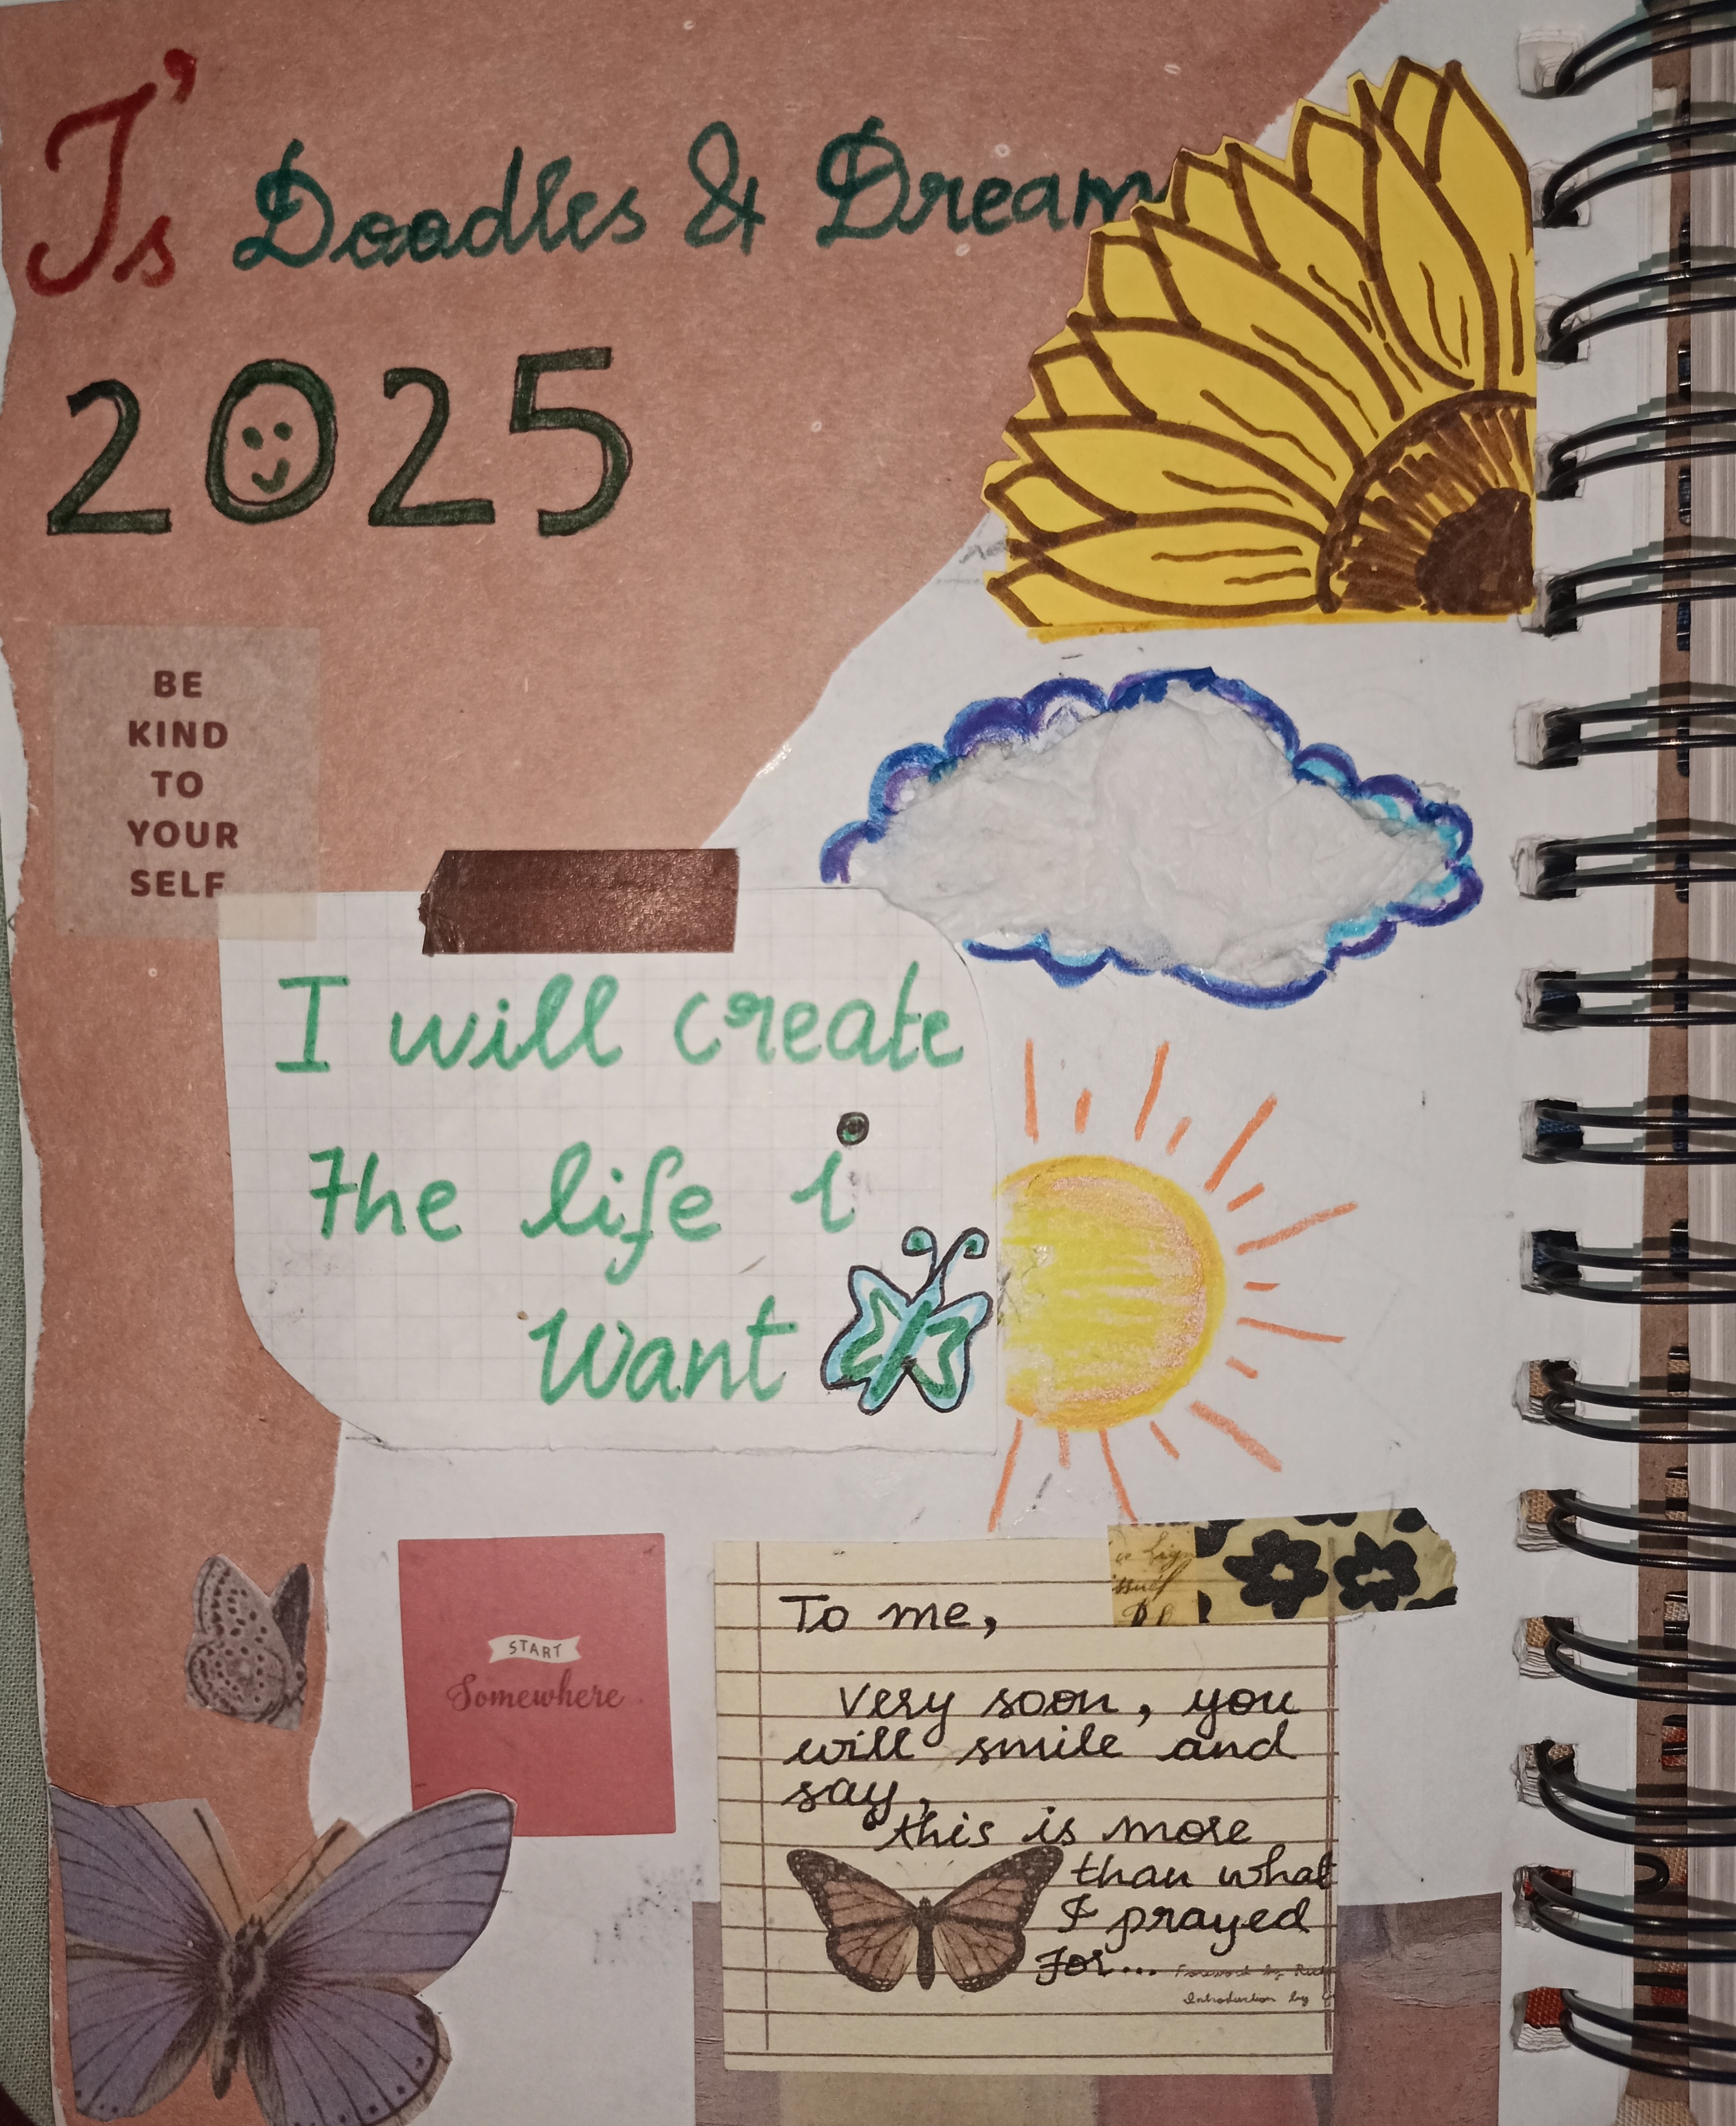 J's Doodles & Dream
2025
BE
KIND
TO
YOUR
SELF
I will create
the life i
want
START
Somewhere
To me,
very soon, you
will smile and
say,
this is more
than what
I prayed
for...
Foreword by
Introduction by